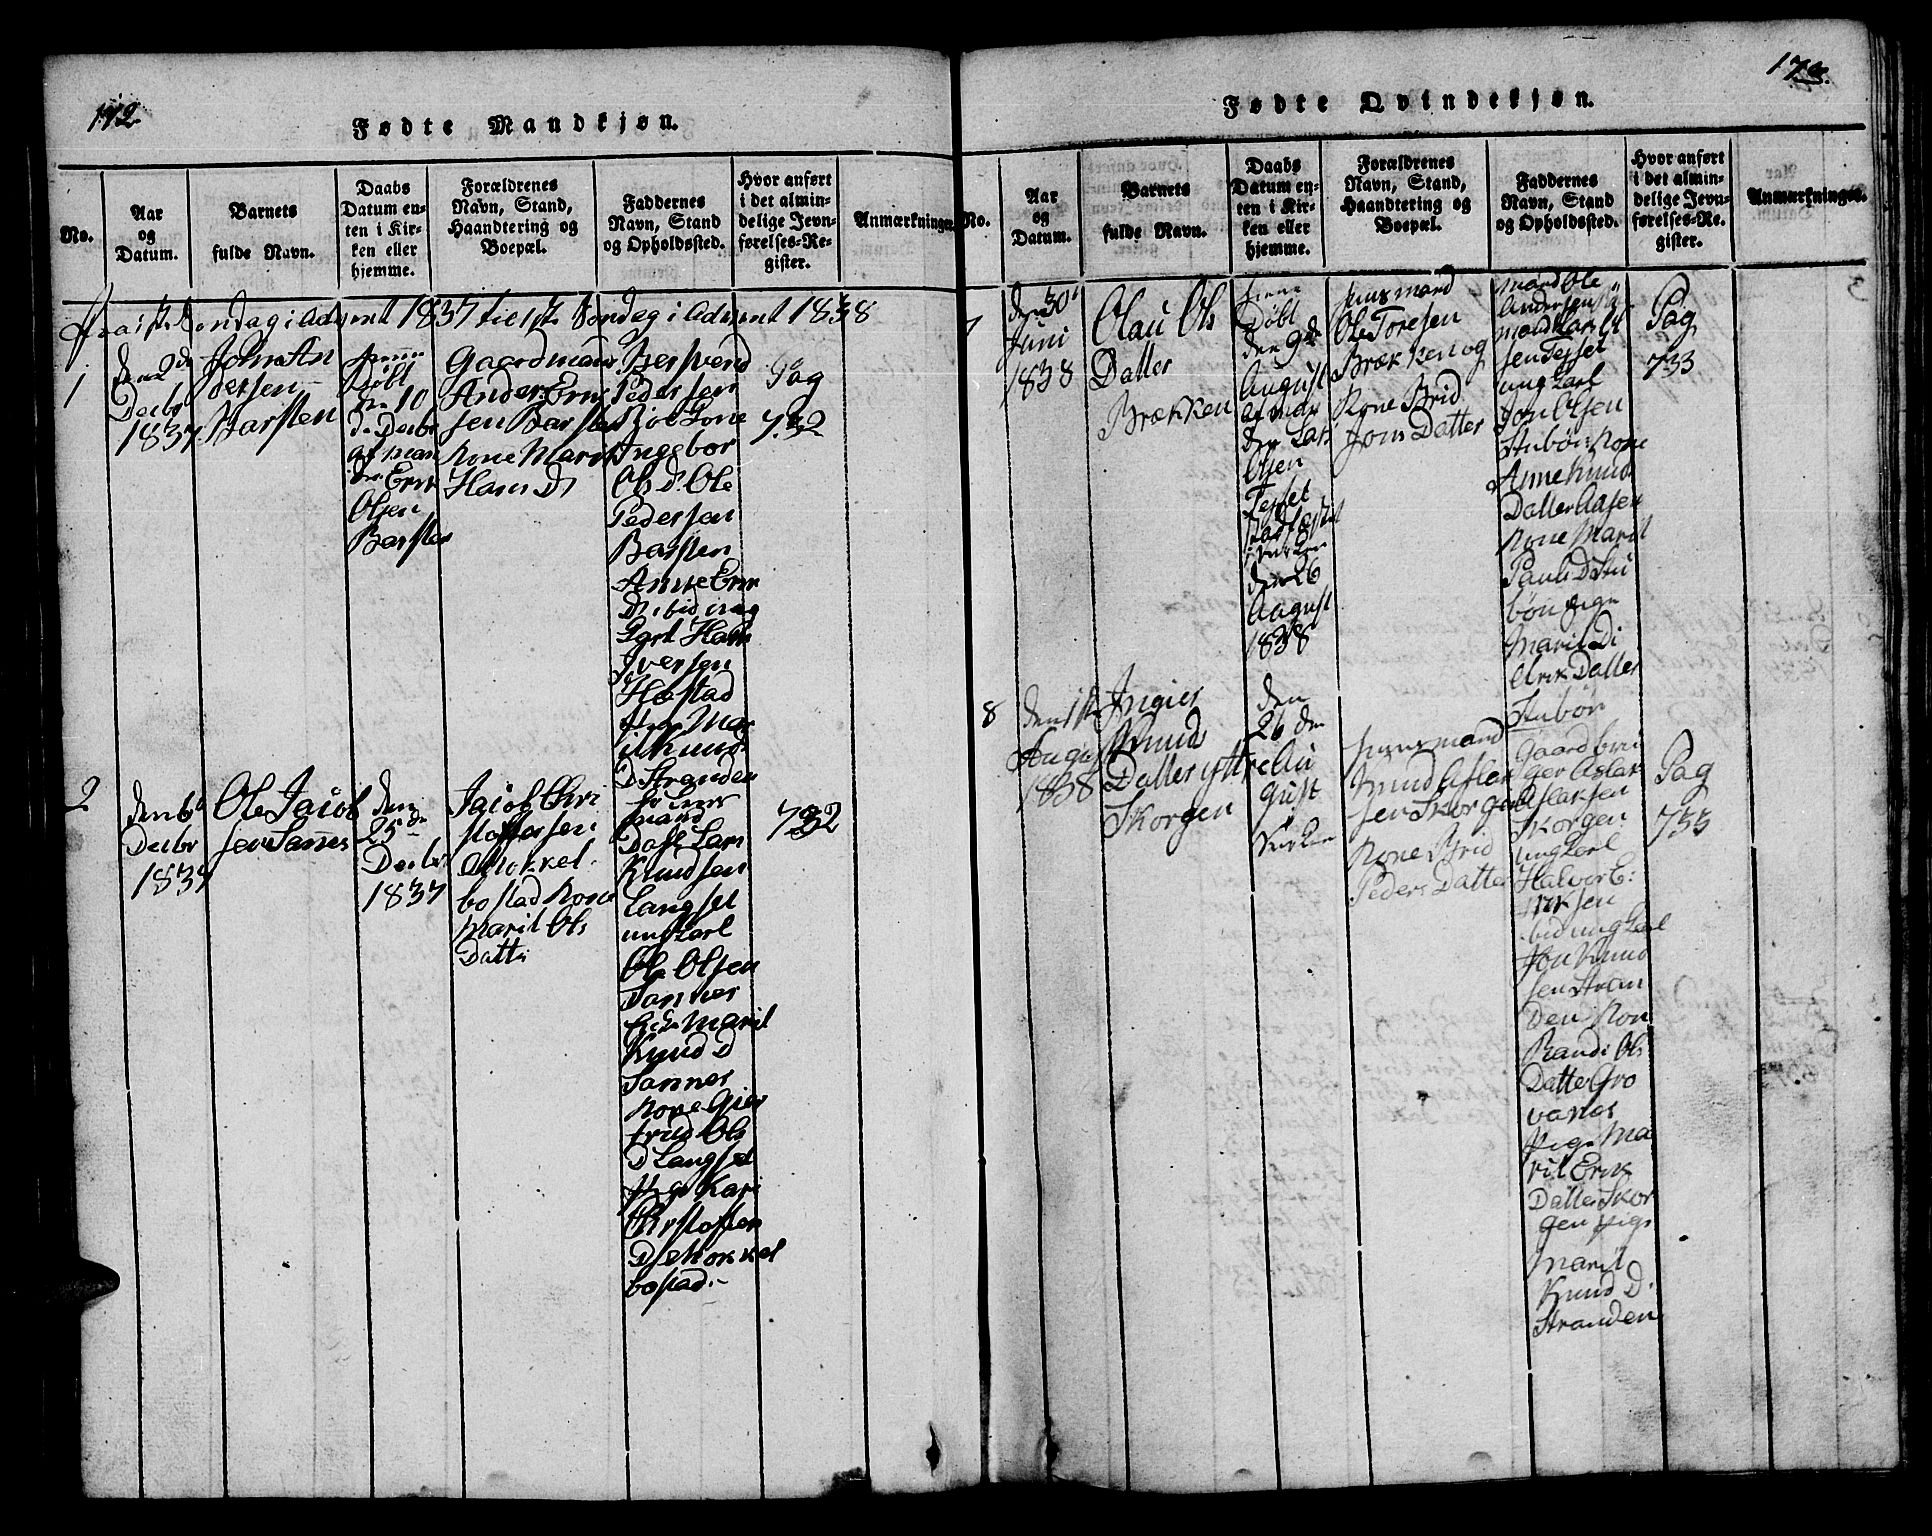 172.
Fødte Mandkjøn.
No.
Aar
og
Datum.
Barnets
fulde Navn.
Daabs
Datum en-
ten i Kir-
ken eller
hjemme.
Forældrenes
Navn, Stand,
Haandtering og
Boepæl.
Faddernes
Navn, Stand
og Opholdssted.
Hvor anført
i det almin-
delige Jevn-
førelses-Re-
gister.
Anmærkninger.
Fra 1ste Søndag i Advent 1837 til 1ste Søndag i Advent 1838
1
den 2de
Decbr
1837
John An
dersen
Barsten
Døbt
den 10
de Decbr
af man
den Erik
Olsen
Barsten
Gaardmand
Anders Erik
sen Barsten
Kone Marit
Hans D
Pedersen
Kone
Ingebor
Ols D. Ole
Pedersen
Barsten
Anne Erik
D. ibid ung
Carl Hans
Iversen
Hastad
Pige Mar
it Knud
D Stranden
2
den 6te
Decbr
1837
Ole Jacob
sen Sannes
den
25de
Decbr
1837
Jacob Chri
stoffersen
Mokkel
bostad Kone
Marit Ols
Datter
mand
Lars
Knudsen
Langset
ung Carl
Ole Olsen
Sannes
Marit
Knud D
Sannes
Kone Gjer
trud Ols
D Langset
Pige Kari
Christoffer
D Mokkel
bostad.
Pag
732
732
173.
Fødte Qvindekjøn.
No.
Aar
og
Datum.
Barnets
fulde Navn.
Daabs
Datum en-
ten i Kir-
ken eller
hjemme.
Forældrenes
Navn, Stand,
Haandtering og
Boepæl.
Faddernes
Navn, Stand
og Opholdssted.
Hvor anført
i det almin-
delige Jevn-
førelses-Re-
gister.
Anmærkninger.
7
den 30te
Juni
1838
Olau Ols
Datter
Brækken
hjeme
Døbt
den 9de
August
af man
den Lars
Olsen
Tesset
Stadfæstet
i Kirken
den 26
August
1838
Huusmand
Ole Toresen
Brækken og
Kone Brid
Jons Datter
mand Ole
Andersen
mand Lars Ol
sen Tesset
ung Carl
Jon Olsen
Stubøe Kone
Anne Knud
Datter Aasen
Kone Marit
Pauls D Stu
bøn Pige
Marit
Erik Datter
Stubøn
Pag
733
8
den 1ste
August
1838
Ingier
Knud
Datter yttre
Skorgen
den
26 de
Au
gust
Kirken
Huusmand
Knud Aslak
sen Skorgen
Kone Brid
Peders Datter
Gaardbru
ger Aslak
Aslaksen
Skorgen
ung Carl
Halvor E:
riksen
ibid ung Carl
Jon Knud
sen Stran
den Kon
Randi Ols
Datter Gro
vanes
Pige Ma
rit Erik
Datter Skor
gen Pige
Marit
Knud D.
Stranden
Pag
733